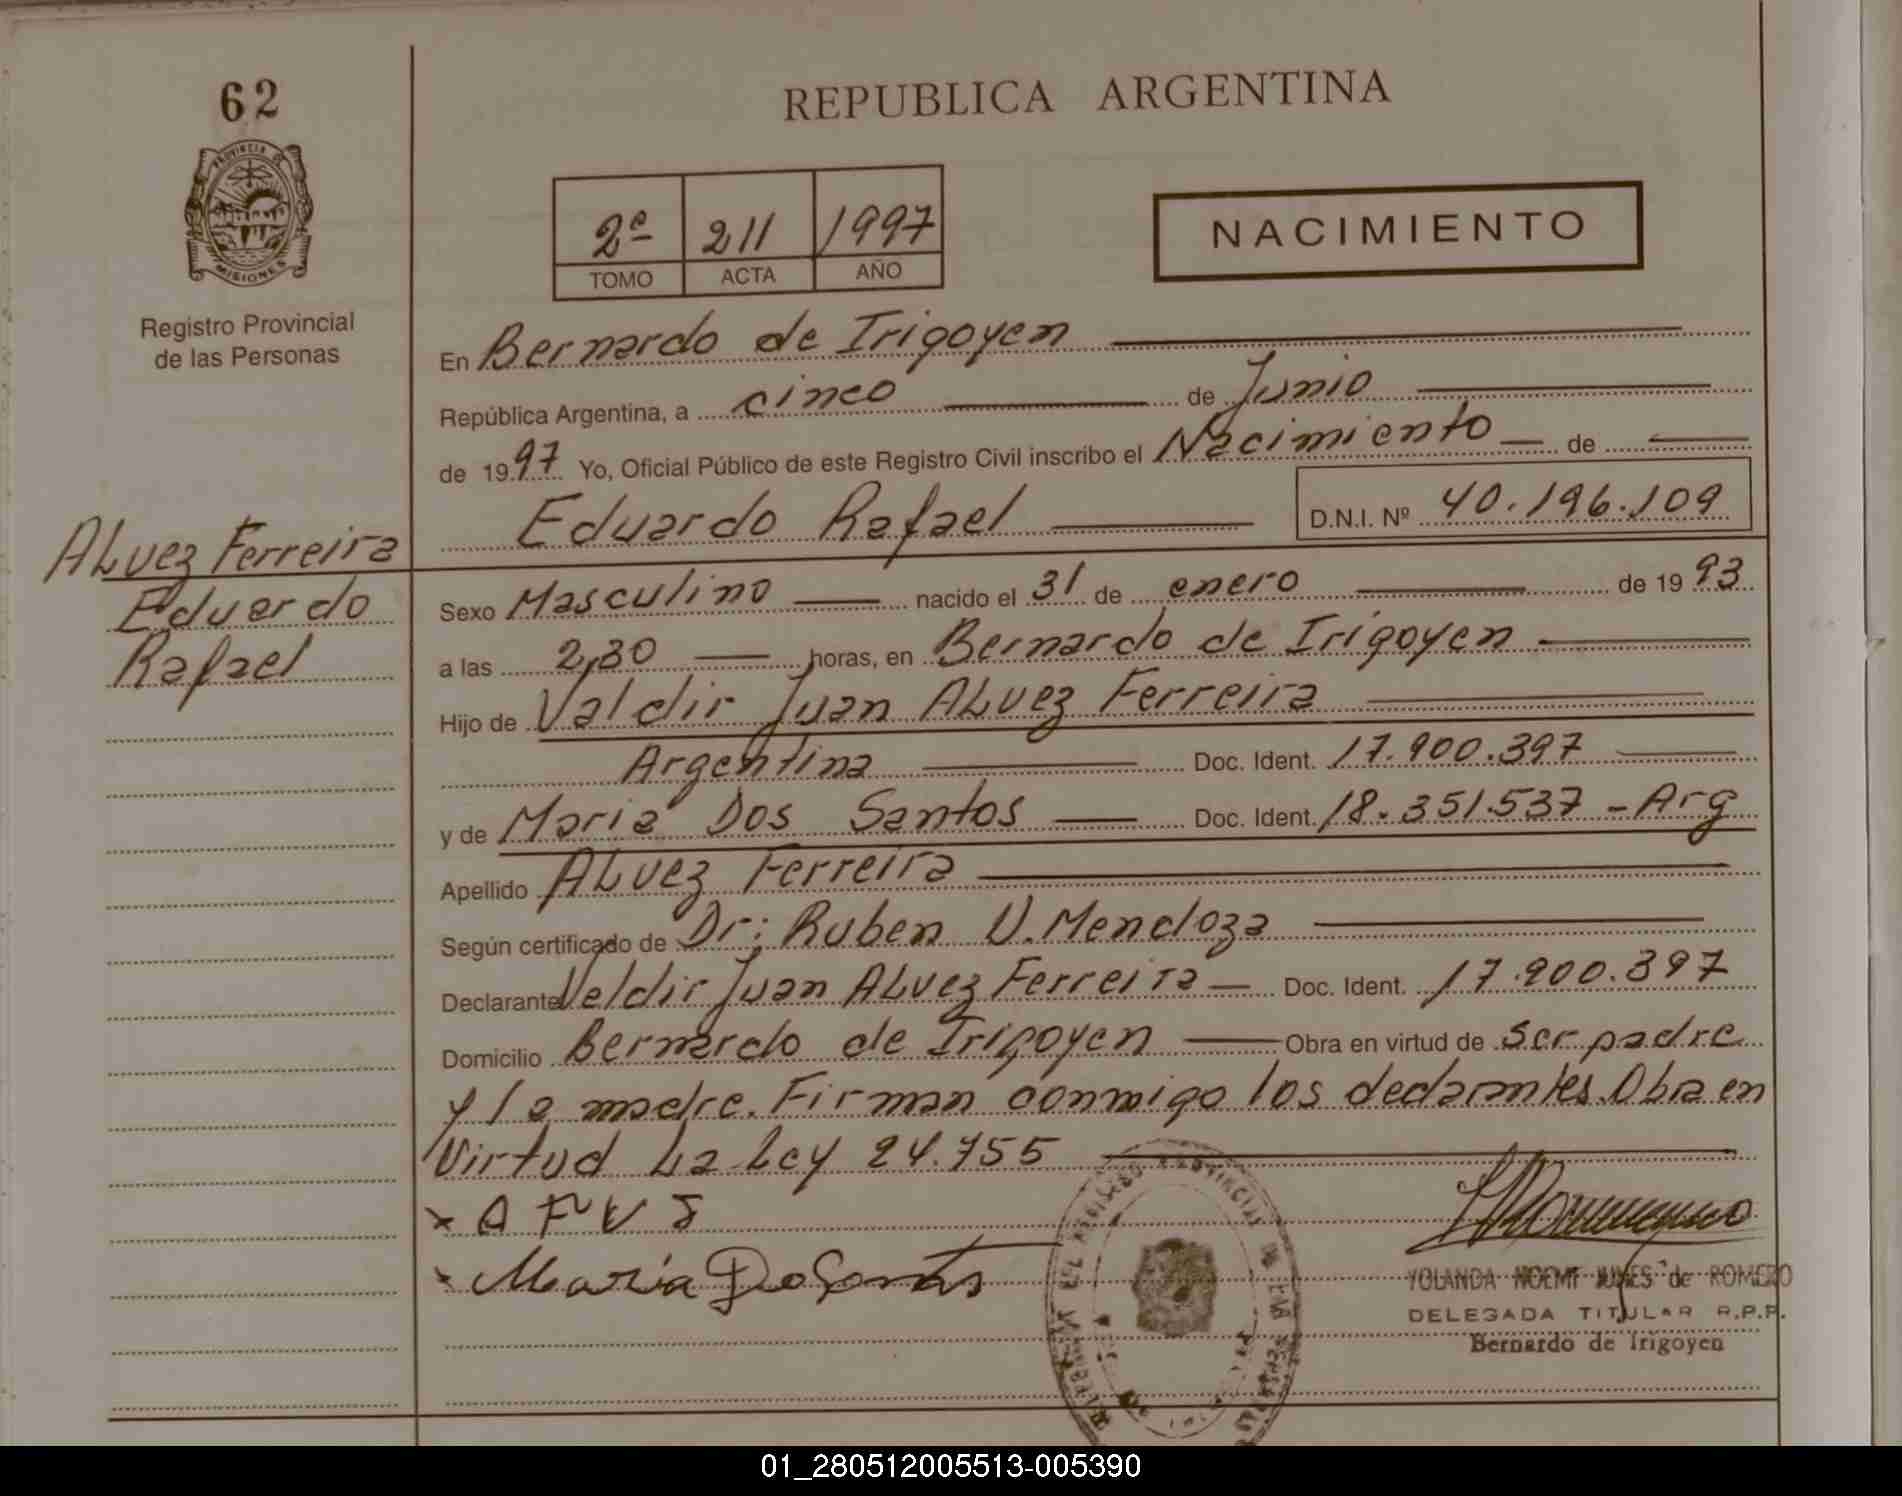 62
REPUBLICA ARGENTINA
PROVINCIA DE
MISIONES
Registro Provincial
de las Personas
2º 211 1997
TOMO ACTA AÑO
NACIMIENTO
En Bernardo de Irigoyen
República Argentina, a cinco de Junio
de 1997 Yo, Oficial Público de este Registro Civil inscribo el Nacimiento de
Eduardo Rafael D.N.I. Nº 40.196.109
ALvez Ferreira
Eduardo
Rafael
Sexo Masculino nacido el 31 de enero de 1993
a las 2,30 horas, en Bernardo de Irigoyen
Hijo de Valdir Juan ALvez Ferreira
Argentina Doc. Ident. 17.900.397
y de Maria Dos Santos Doc. Ident. 18.351.537 - Arg
Apellido ALvez Ferreira
Según certificado de Dr: Ruben V. Mendoza
Declarante Valdir Juan ALvez Ferreira Doc. Ident. 17.900.397
Domicilio Bernardo de Irigoyen Obra en virtud de ser padre
y la madre. Firman conmigo los declarantes. Obra en
Virtud La Ley 24.755
x A F V J
x Maria Do Santos
YOLANDA NOEMI de ROMERO
DELEGADA TITULAR R.P.P.
Bernardo de Irigoyen
01_280512005513-005390